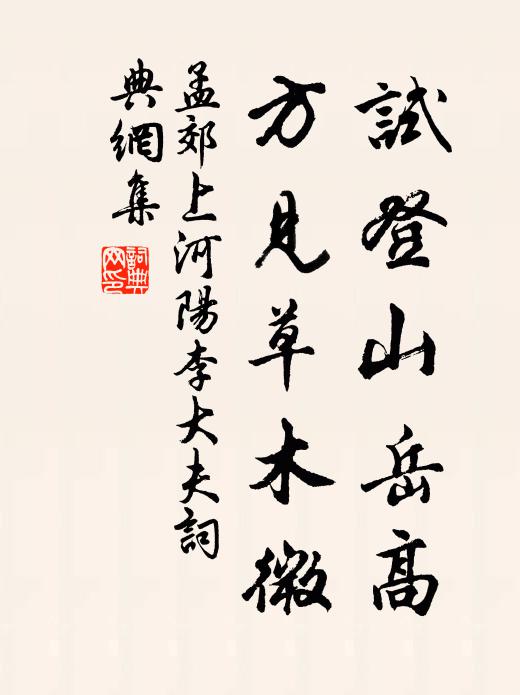 試登山岳高
方見草木微
孟郊上河陽李大夫詞
典網集
詞典網印